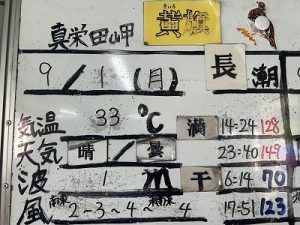 真栄田岬
黄旗
9/1(月) 長潮
気温 33℃ 満 14:24 128
天気 晴/曇 23:40 149
波 1m 干 6:14 70
風 南東 2-3~4~ 4 17:51 123